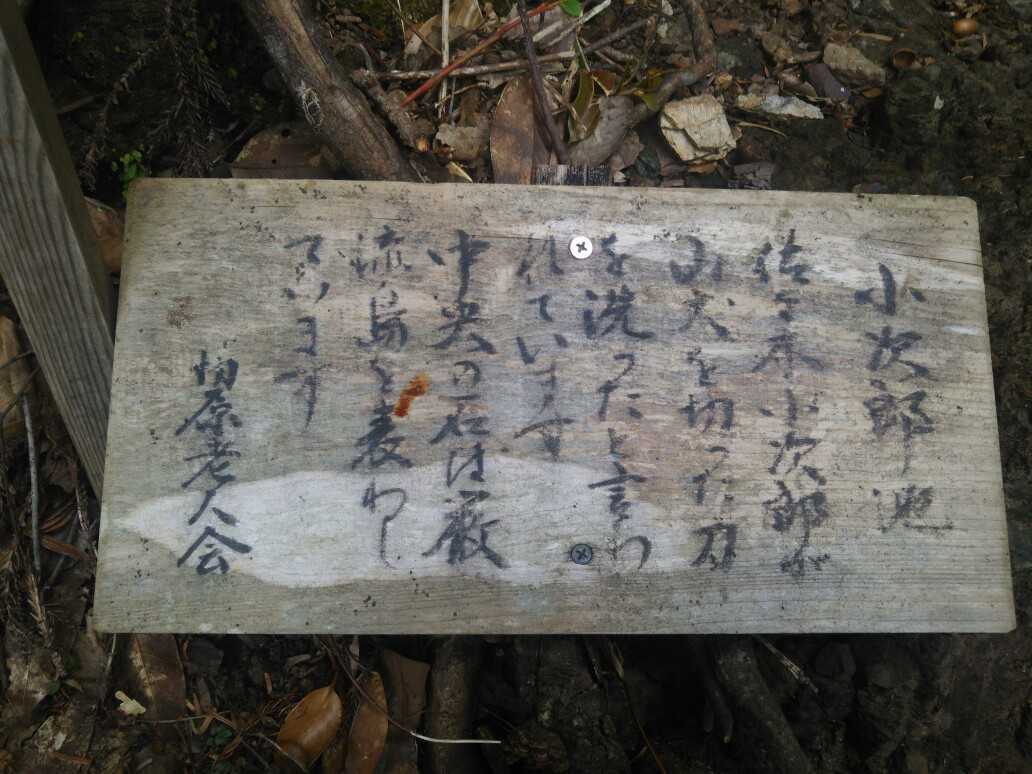 小次郎池
佐々木小次郎が
山犬を切った刀
を洗ったと言わ
れています
中央の石は巌
流島を表わし
ています
原老人会